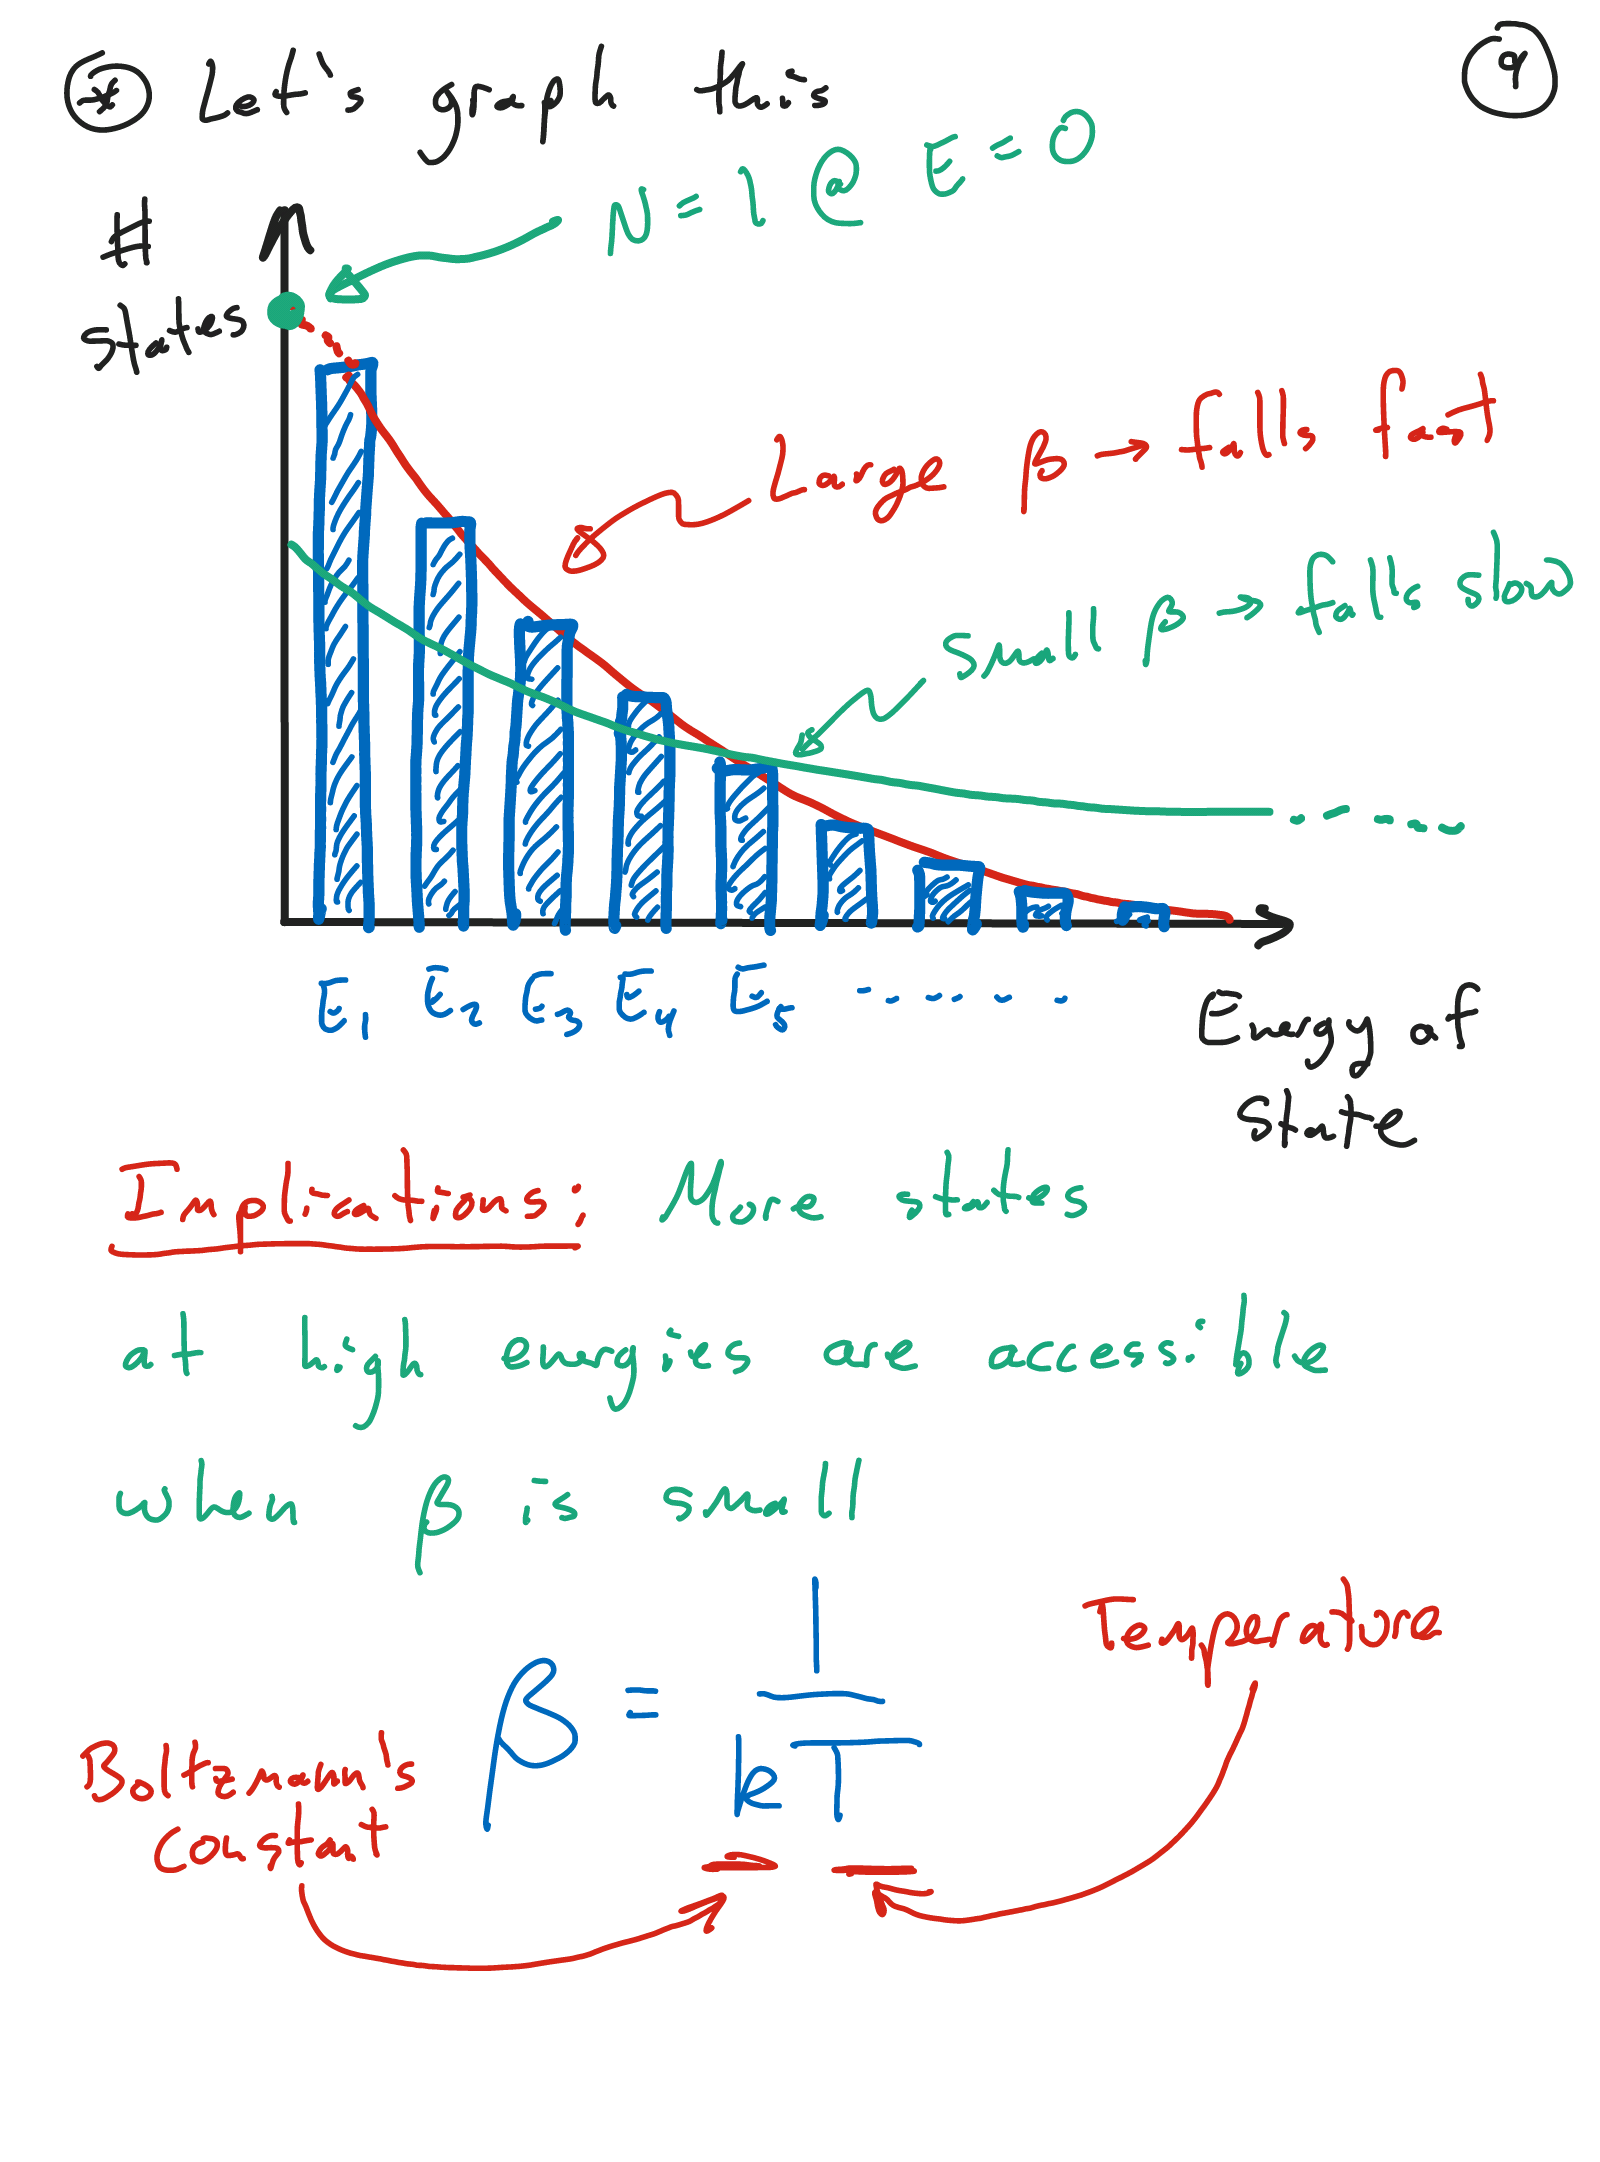 ⊛ Let's graph this
9
N = 1 @ E = 0
#
states
Large β → falls fast
Small β → falls slow
E₁ E₂ E₃ E₄ E₅ ......
Energy of
State
Implications: More states
at high energies are accessible
when β is small
β = 1 / kT
Temperature
Boltzmann's
constant